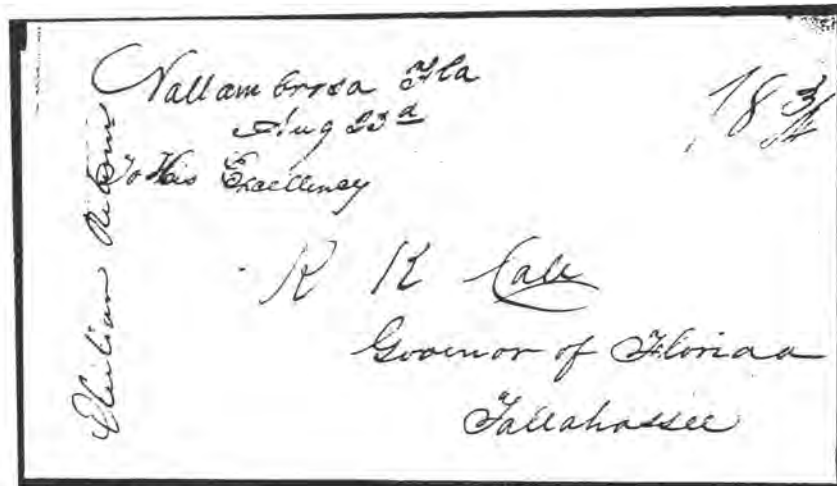 Vallambrosa Fla
Aug 23d
18 3/4
To His Excellency
R K Call
Governor of Florida
Tallahassee
Election Returns